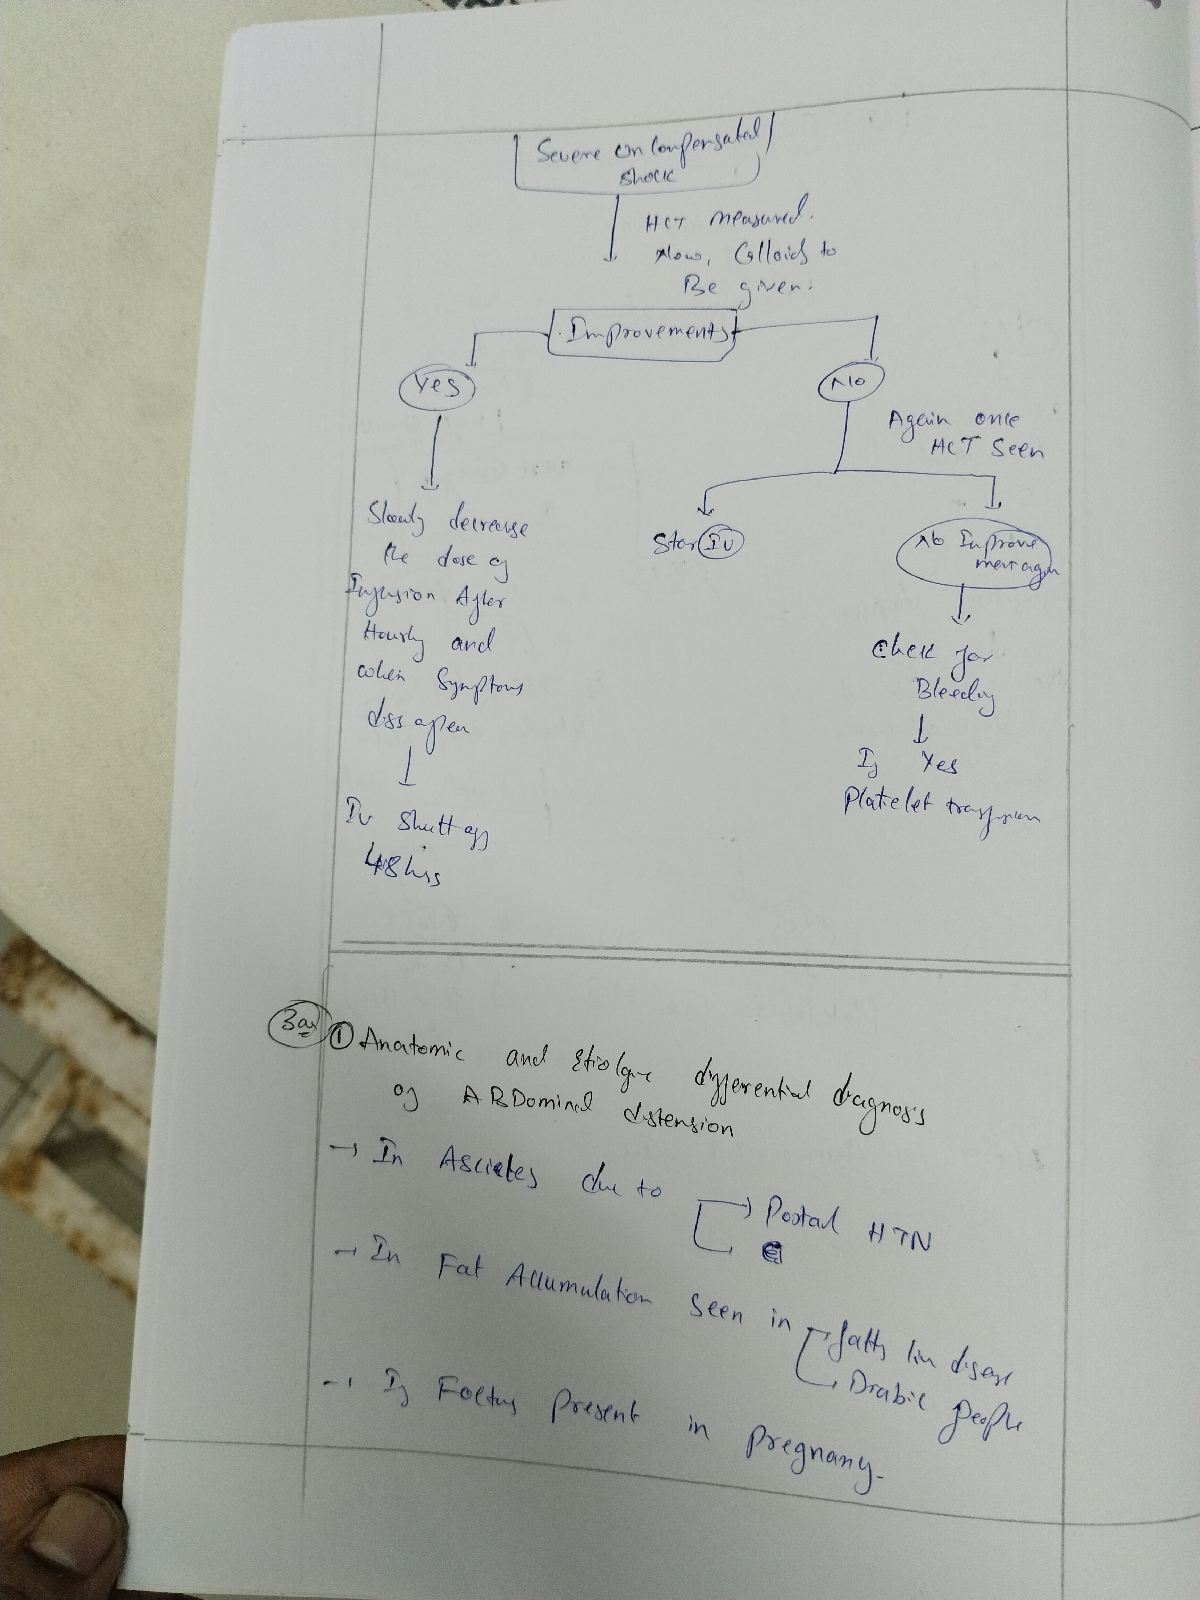 Severe Uncompensated
shock
HCT measured.
Now, Colloids to
Be given.
Improvements
Yes
No
Again once
HCT Seen
Slowly decrease
the dose of
Infusion After
Hourly and
when Symptoms
diss appear
Iv Shutt off
48 hrs
Star IV
No Improve
ment again
Check for
Bleeding
If Yes
Platelet transfusion
3a) ① Anatomic and Etiolgic differential diagnosis
of ABDominal distension
→ In Ascietes due to
Postal HTN
→ In Fat Accumulation Seen in
fatty liv disease
people
→ If Foetus Present in pregnany.